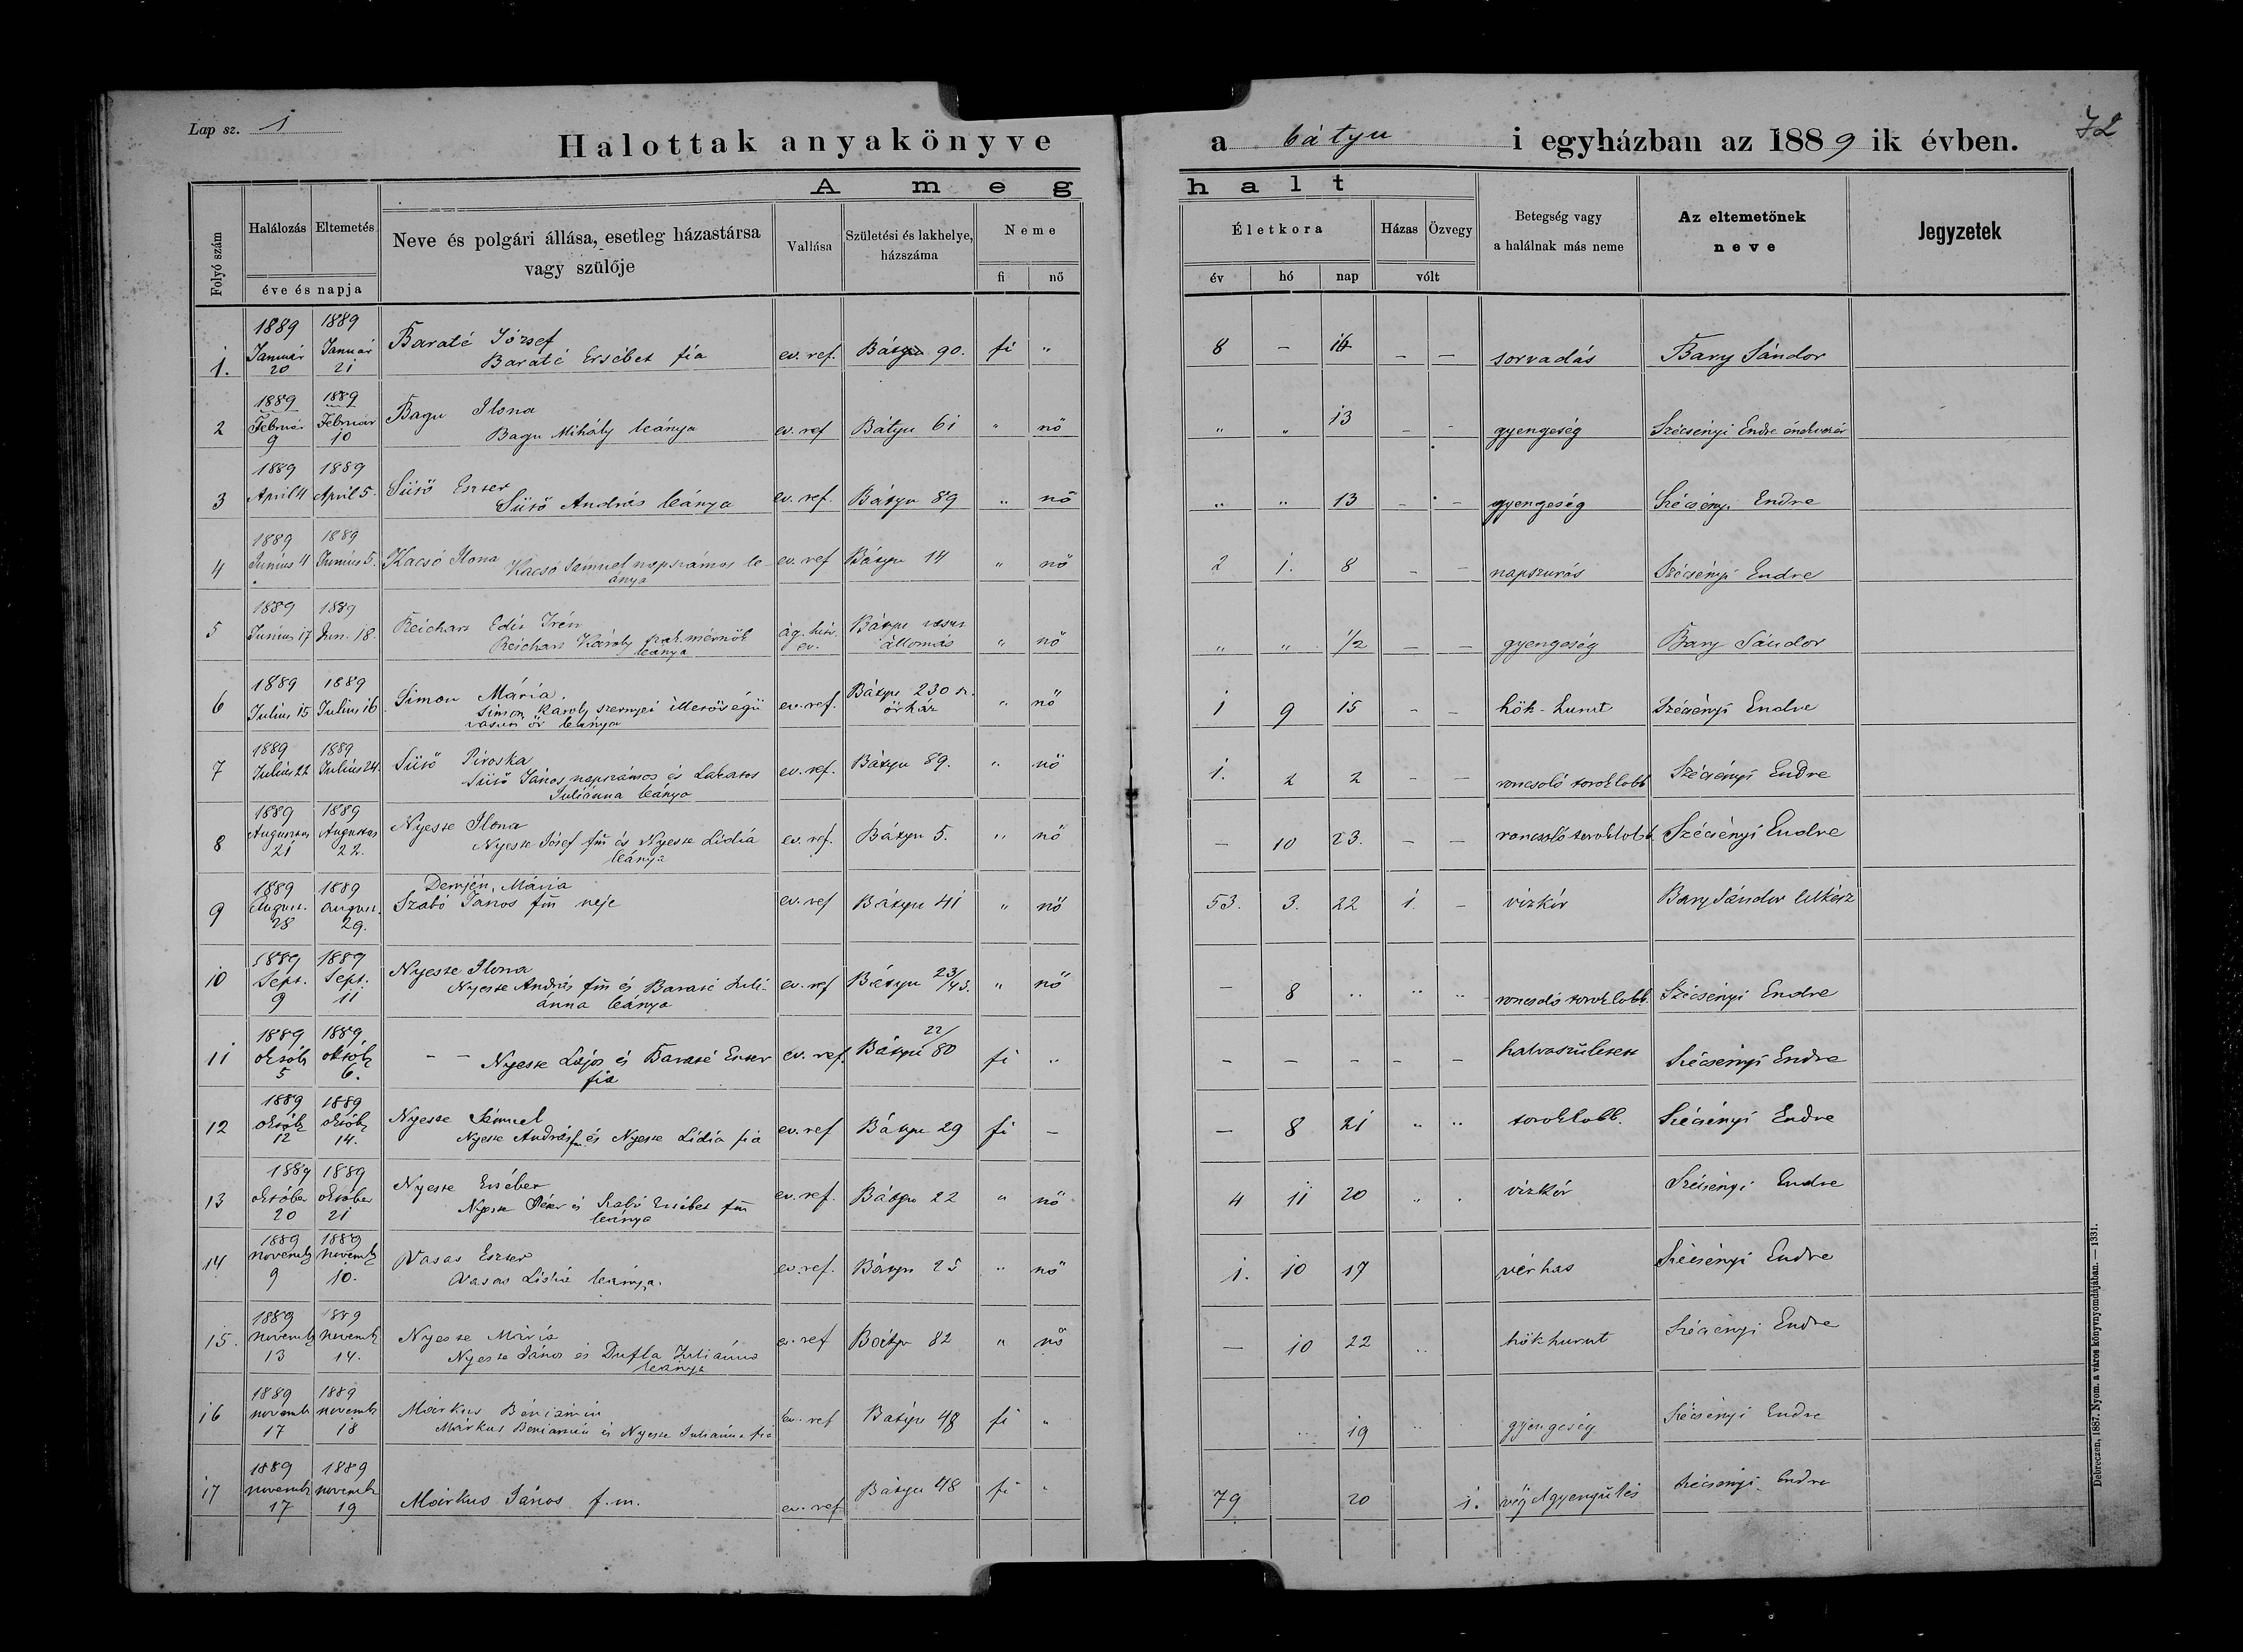 Lap sz. 1
Halottak anyakönyve a bátyu i egyházban az 1889 ik évben.
72
A meghalt
Folyó szám
Halálozás Eltemetés
éve és napja
Neve és polgári állása, esetleg házastársa
vagy szülője
Vallása
Születési és lakhelye,
házszáma
Neme
fi nő
Életkora
év hó nap
Házas Özvegy
vólt
Betegség vagy
a halálnak más neme
Az eltemetőnek
neve
Jegyzetek
1. 1889 Január 20 1889 Január 21 Baraté József
Baraté Ersébet fia ev. ref. Bátyu 90. fi " 8 – 16 – – sorvadás Bary Sándor
2 1889 Február 9 1889 Február 10 Bagu Ilona
Bagu Mihály leánya ev. ref Bátyu 61 " nő " " 13 – – gyengeség Szécsényi Endre
3 1889 April 4 1889 April 5. Sütő Eszter
Sütő András leánya ev. ref. Bátyu 89 " nő " " 13 – – gyengeség Szécsényi Endre
4 1889 Június 4 1889 Június 5. Kacsó Ilona
Kacsó Sámuel napszámos le-
ánya ev. ref Bátyu 14 " nő 2 1. 8 – – napszurás Szécsényi Endre
5 1889 Június 17 1889 Jun. 18. Reichart Edit Irén
Reichart Károly mérnök
leánya ág. hitv.
ev. Bátyu vasut
állomás " nő " " 1/2 – – gyengeség Bary Sándor
6 1889 Julius 15 1889 Julius 16 Simon Mária.
Simon Károly szernyei illetőségü
vasuti őr leánya ev. ref. Bátyu 230 sz.
őrház " nő 1 9 15 – – hök-hurut Szécsényi Endre
7 1889 Július 22 1889 Július 24. Sütő Piroska
Sütő János napszámos és Lakatos
Juliánna leánya ev. ref. Bátyu 89. " nő 1. 2 2 – – roncsoló toroklobb Szécsényi Endre
8 1889 Augusztus 21 1889 Augusztus 22. Nyeste Ilona
Nyeste Jósef fm és Nyeste Lidia
leánya ev. ref. Bátyu 5. " nő – 10 23. – – roncsoló toroklobb Szécsényi Endre
9 1889 August. 28 1889 August. 29. Demjén Mária
Szabó János fm neje ev. ref Bátyu 41 " nő 53. 3. 22 1. – vizkór Bary Sándor lelkész
10 1889 Sept. 9 1889 Sept. 11 Nyeste Ilona
Nyeste András fm és Baraté Juli-
ánna leánya ev. ref Bátyu 23/43. " nő – 8 " " " roncsoló toroklobb. Szécsényi Endre
11 1889 októb 5 1889 októb 6. – – Nyeste Lajos és Baraté Eszter
fia ev. ref. Bátyu 22/80 fi " – – – – – halvaszületett Szécsényi Endre
12 1889 októb 12 1889 októb 14. Nyeste Sámuel
Nyeste András fm és Nyeste Lidia fia ev. ref Bátyu 29 fi – – 8 21 " " toroklobb. Szécsényi Endre
13 1889 október 20 1889 október 21 Nyeste Ersébet
Nyeste Péter és Szabó Ersébet fm
leánya ev. ref. Bátyu 22 " nő 4 11 20 " " vizkór Szécsényi Endre
14 1889 novemb 9 1889 novemb 10. Vasas Eszter
Vasas Lidia leánya. ev. ref. Bátyu 25 " nő 1. 10 17 vérhas Szécsényi Endre
15. 1889 novemb 13 1889 novemb 14. Nyeste Mária
Nyeste János és Dufla Juliánna
leánya ev. ref Bátyu 82 " nő – 10 22 " hökhurut Szécsényi Endre
16 1889 novemb 17 1889 novemb 18 Márkus Béniámin
Márkus Beniamin és Nyeste Juliánna fia ev. ref Bátyu 48 fi " " 19 " gyengeség Szécsényi Endre
17 1889 novemb 17 1889 novemb 19 Márkus János f. m. ev. ref Bátyu 48 fi " 79 20 1. végelgyengülés Szécsényi Endre
Debreczen, 1887. Nyom. a város könyvnyomdájában. — 1331.